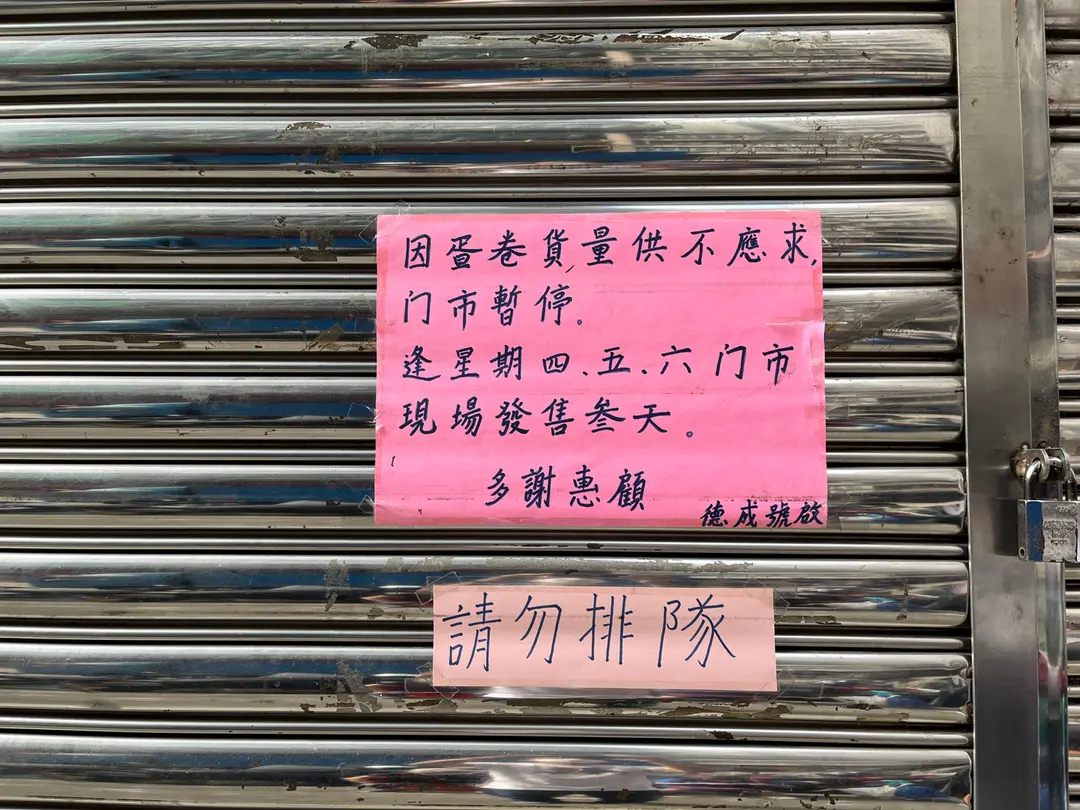 因蛋卷貨量供不應求,
门市暫停。
逢星期四、五、六门市
現場發售叁天。
多謝惠顧
德成號啟
請勿排隊